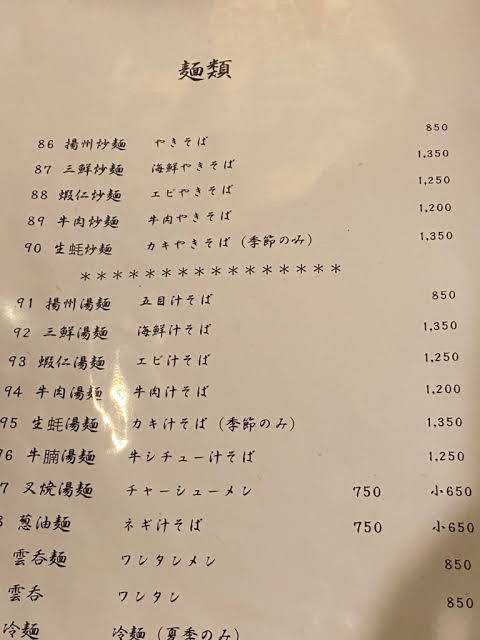 麺類
86 揚州炒麺 やきそば 850
87 三鮮炒麺 海鮮やきそば 1,350
88 蝦仁炒麺 エビやきそば 1,250
89 牛肉炒麺 牛肉やきそば 1,200
90 生蚝炒麺 カキやきそば(季節のみ) 1,350
*****************
91 揚州湯麺 五目汁そば 850
92 三鮮湯麺 海鮮汁そば 1,350
93 蝦仁湯麺 エビ汁そば 1,250
94 牛肉湯麺 牛肉汁そば 1,200
95 生蚝湯麺 カキ汁そば(季節のみ) 1,350
96 牛腩湯麺 牛シチュー汁そば 1,250
7 叉焼湯麺 チャーシューメン 750 小650
葱油麺 ネギ汁そば 750 小650
雲呑麺 ワンタンメン 850
雲呑 ワンタン 850
冷麺 冷麺(夏季のみ)